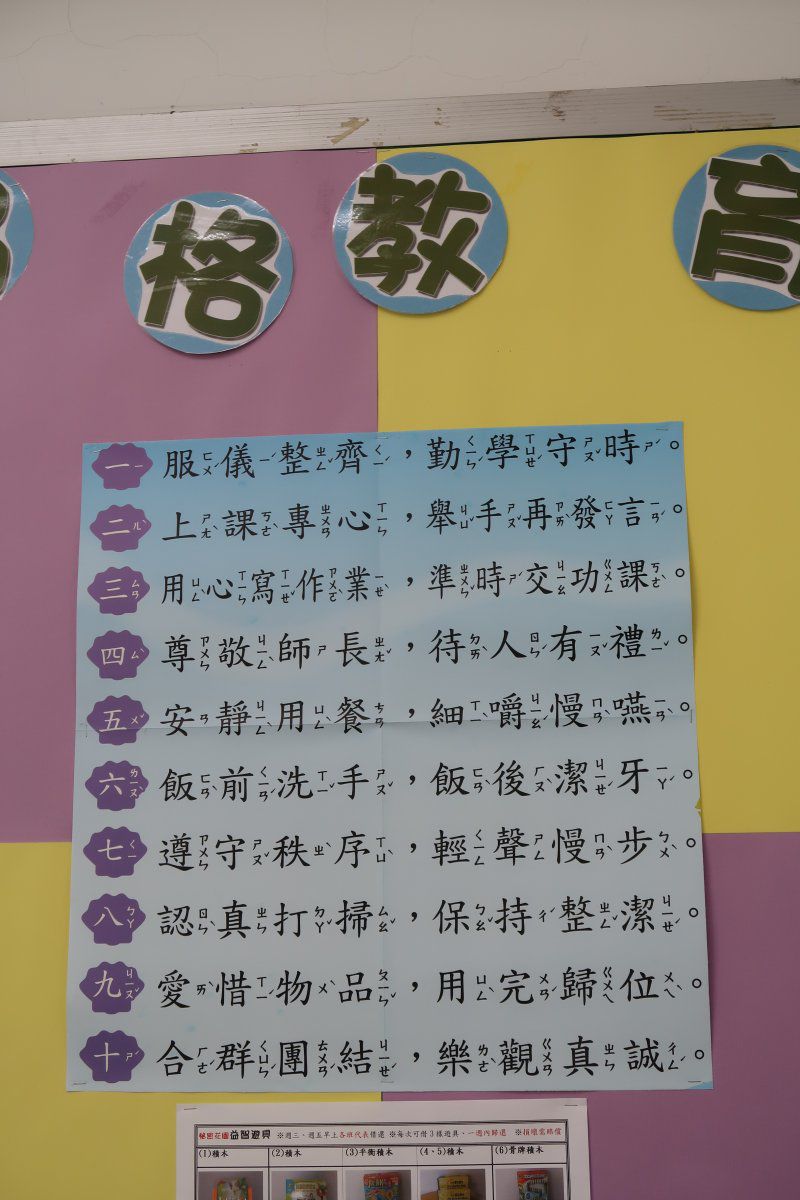 格教育
一 服儀整齊，勤學守時。
二 上課專心，舉手再發言。
三 用心寫作業，準時交功課。
四 尊敬師長，待人有禮。
五 安靜用餐，細嚼慢嚥。
六 飯前洗手，飯後潔牙。
七 遵守秩序，輕聲慢步。
八 認真打掃，保持整潔。
九 愛惜物品，用完歸位。
十 合群團結，樂觀真誠。
秘密花園益智遊具 ※週三、週五早上各班代表借還 ※每次可借3樣遊具、一週內歸還 ※損壞需賠償
(1)積木 (2)積木 (3)平衡積木 (4、5)積木 (6)骨牌積木